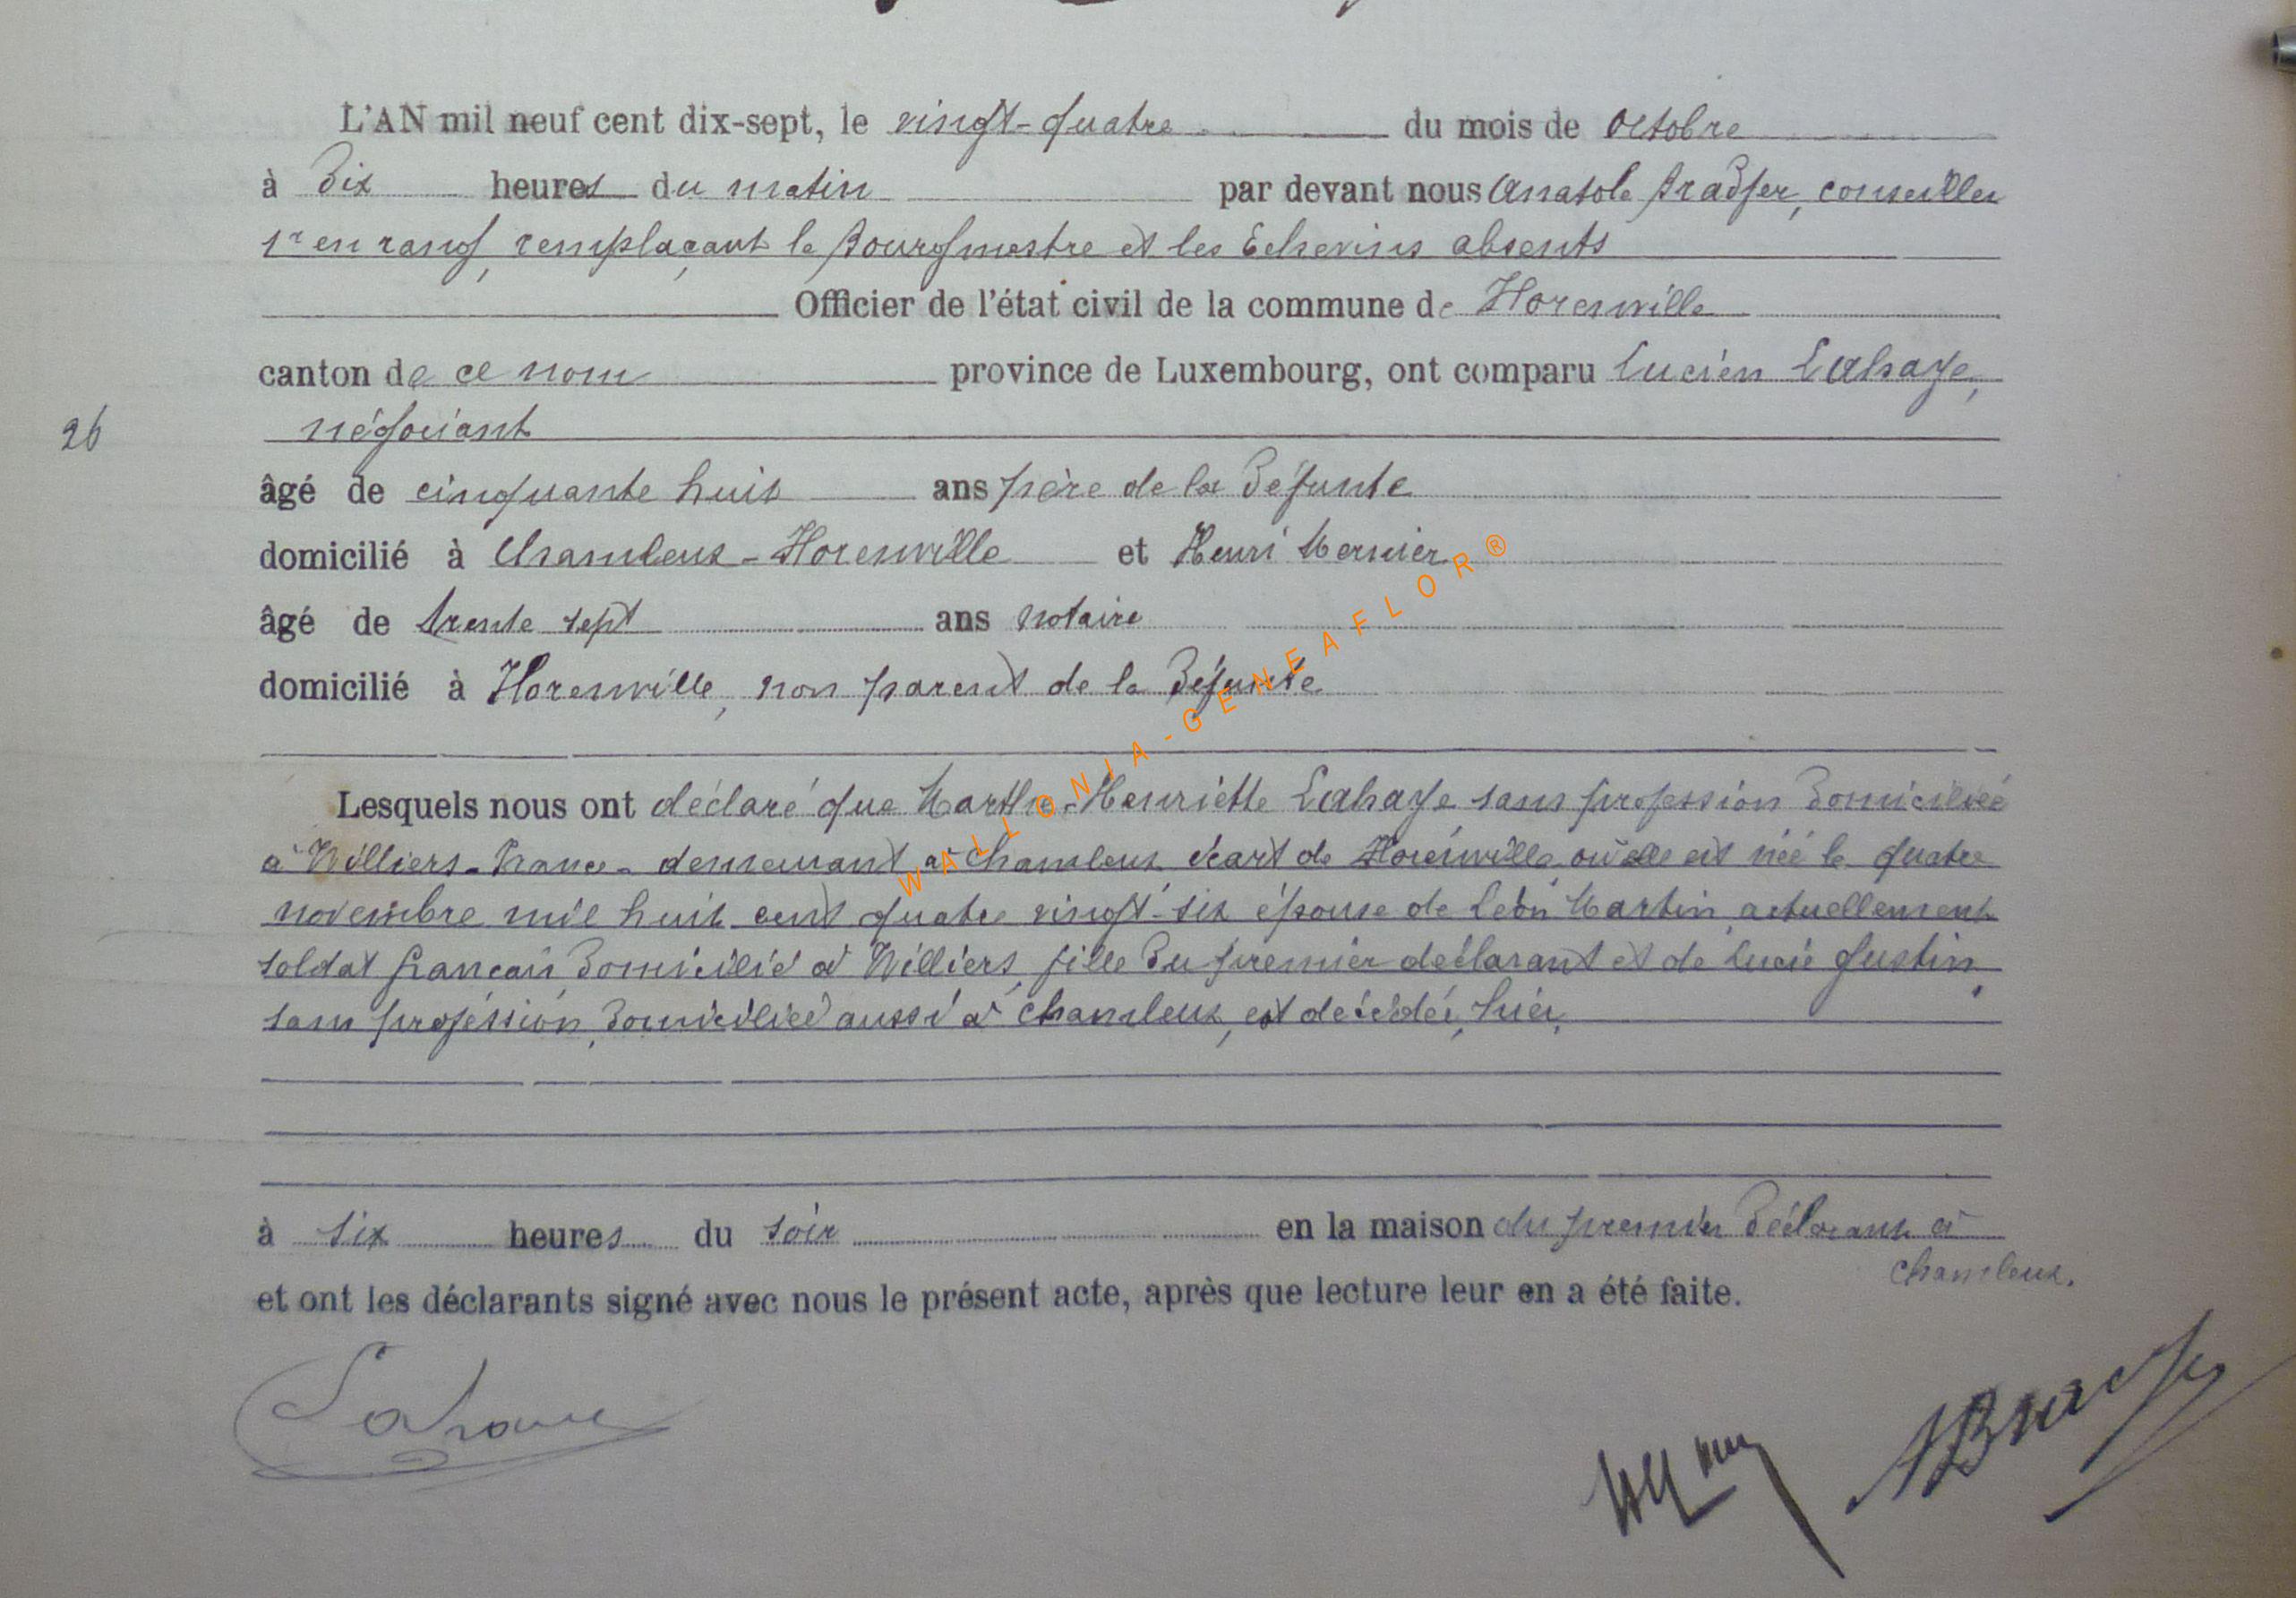 L'AN mil neuf cent dix-sept, le vingt-quatre du mois de octobre
à Dix heures du matin par devant nous Anatole Bradfer, conseiller
1er en rang, remplaçant le Bourgmestre et les Echevins absents
Officier de l'état civil de la commune de Florenville
canton de ce nom province de Luxembourg, ont comparu Lucien Lahaye,
26
négociant
âgé de cinquante huit ans père de la Défunte
domicilié à Chameleux - Florenville et Henri Mernier
âgé de trente sept ans notaire
domicilié à Florenville, non parent de la Défunte
Lesquels nous ont déclaré que Marthe-Henriette Lahaye sans profession Domiciliée
à Williers - France - demeurant à Chameleux écart de Florenville, où elle est née le quatre
novembre mil huit cent quatre vingt-six épouse de Léon Martin, actuellement
soldat français, Domicilié à Williers, fille Du premier déclarant et de Lucie Gustin,
sans profession, Domiciliée aussi à Chameleux, est décédée, hier,
à six heures du soir en la maison du premier Déclarant à
Chameleux.
et ont les déclarants signé avec nous le présent acte, après que lecture leur en a été faite.
Lahaye
ABradfer
WALLONIA-GENEAFLOR®